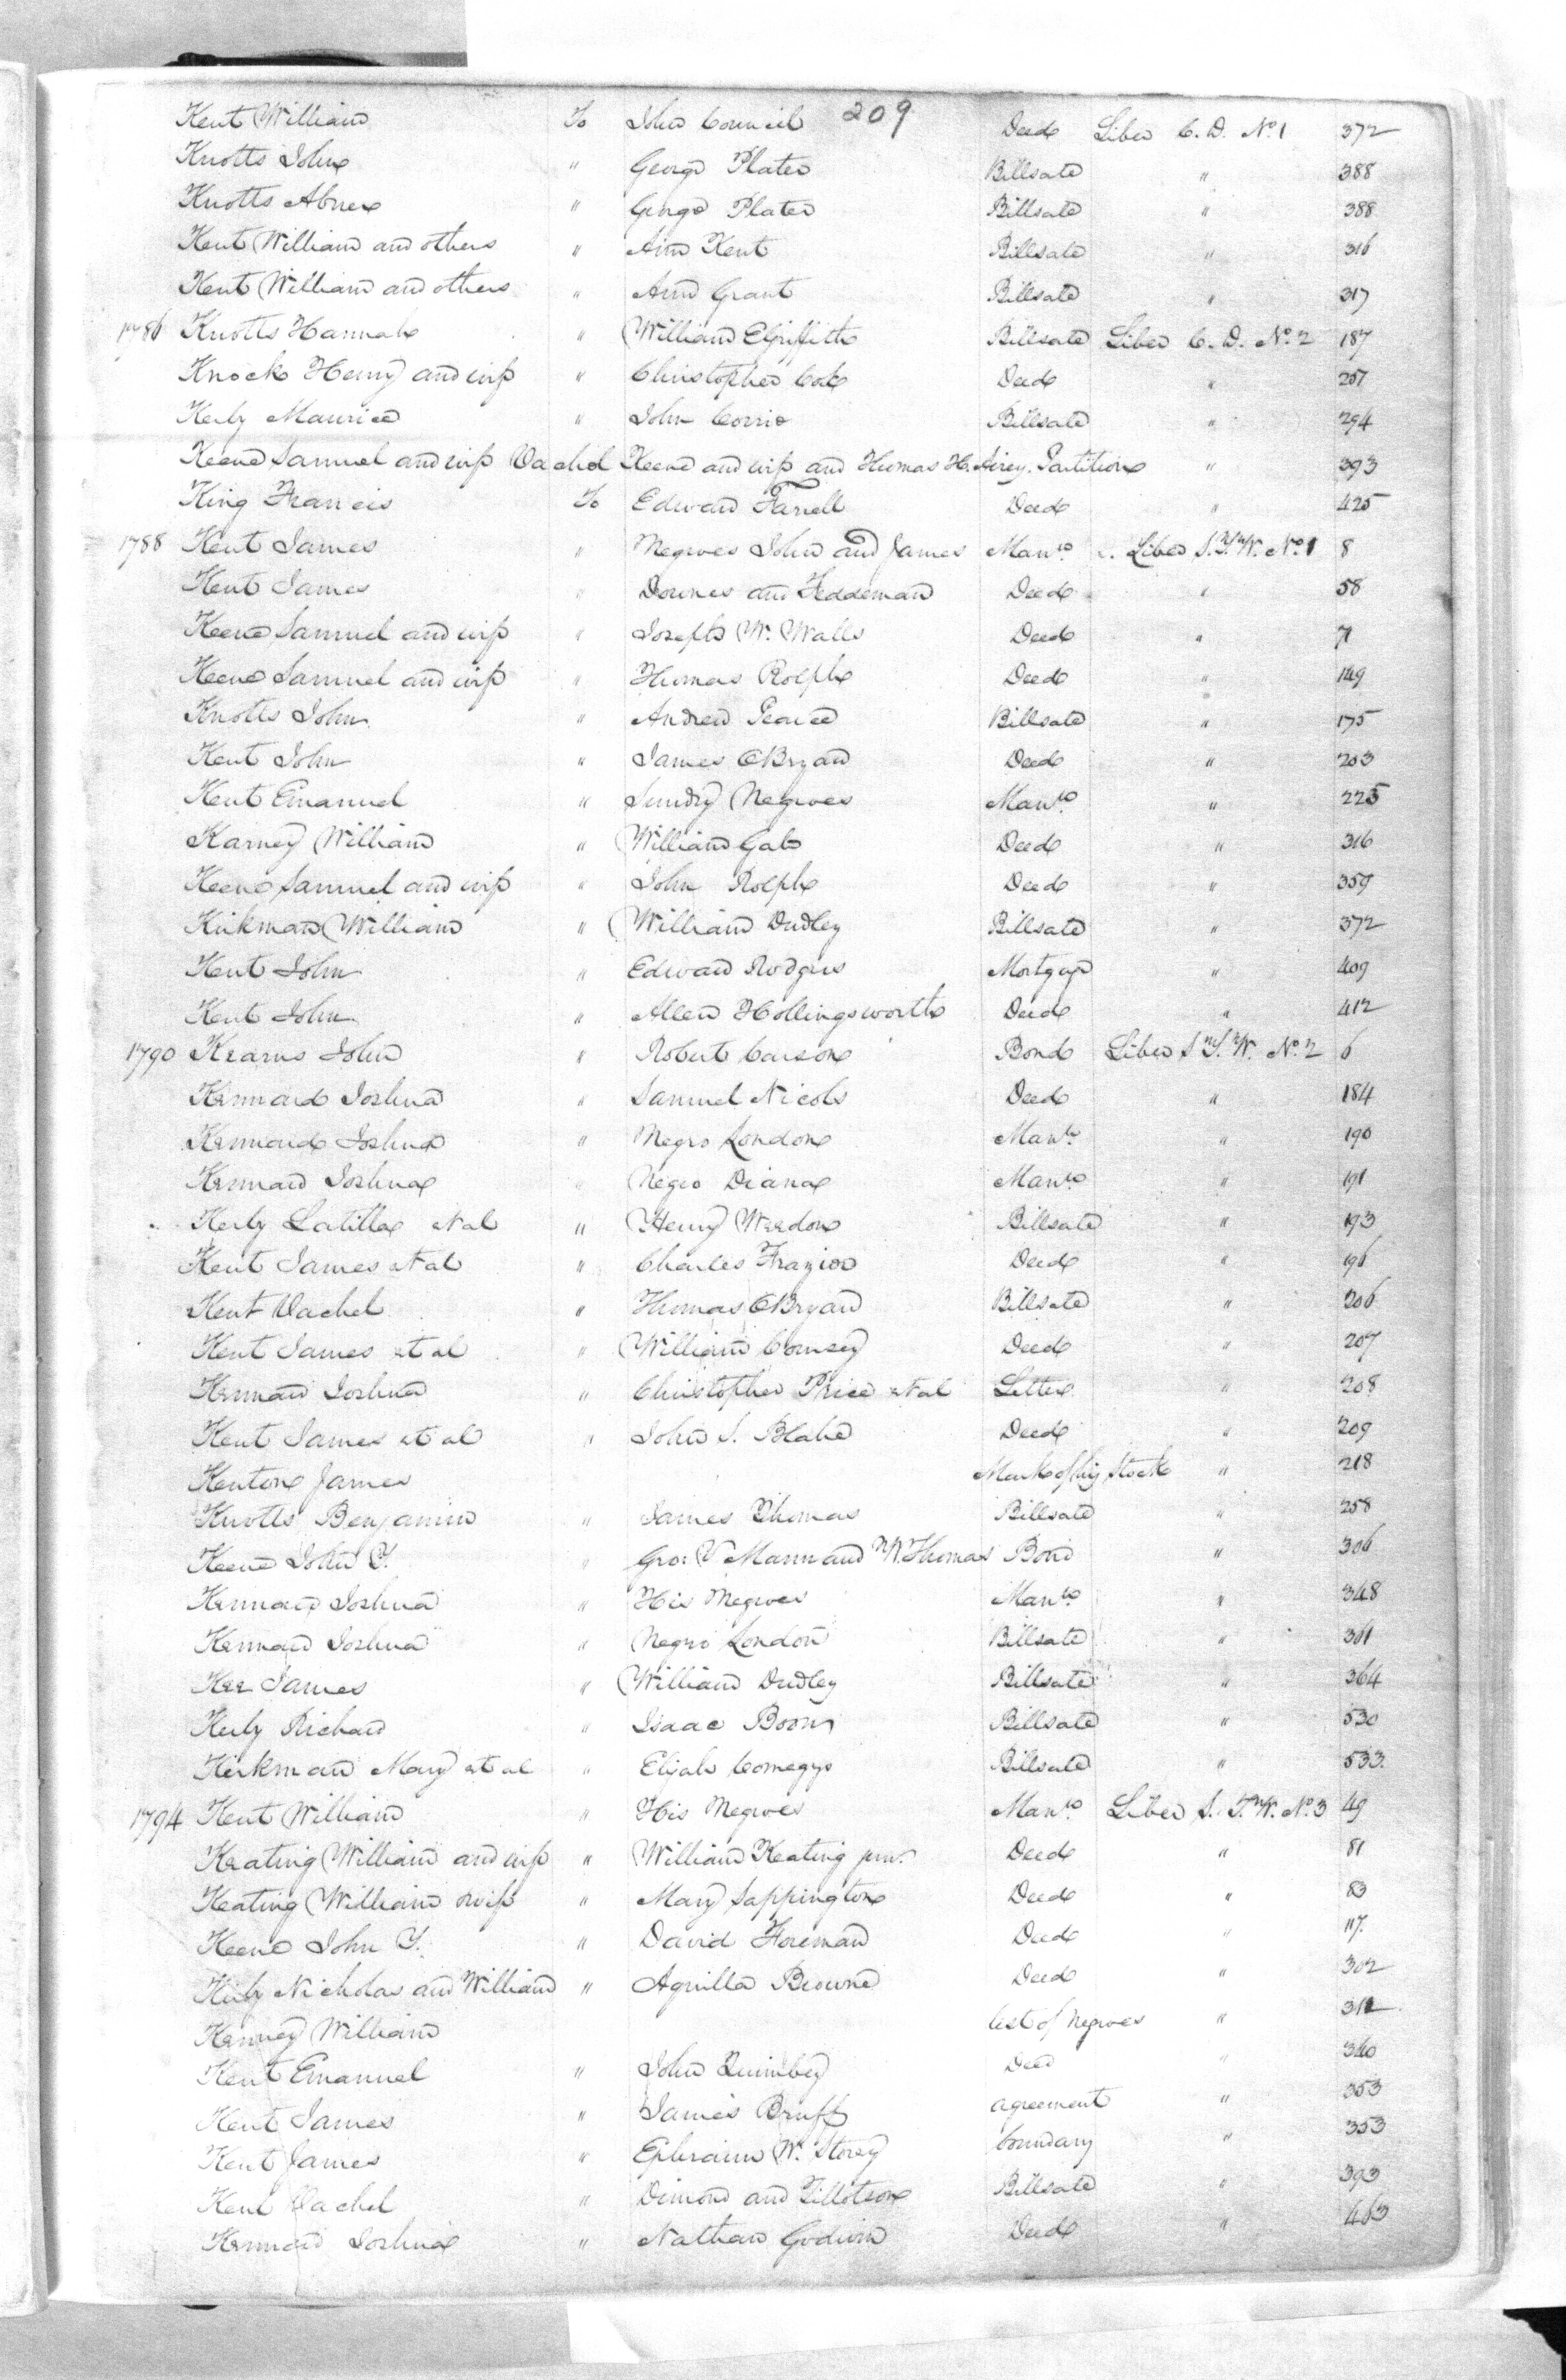 209
Kent William To John Council Deed Liber C. D. No. 1 372
Knotts John " George Plater Billsale " 388
Knotts Abner " George Plater Billsale " 388
Kent William and others " Ann Kent Billsale " 316
Kent William and others " Ann Grant Billsale " 317
1786 Knotts Hannah " William E Griffith Billsale Liber C. D. No. 2 187
Knock Henry and wife " Christopher Cox Deed " 207
Kerby Maurice " John Corrie Billsale " 294
Keene Samuel and wife Vachel Keene and wife and Thomas H. Airey. Partition " 393
King Francis To Edward Farrell Deed " 425
1788 Kent James " Negroes John and James Mano. Liber S.T.W. No. 1 8
Kent James " Downes and Feddeman Deed " 58
Keene Samuel and wife " Joseph W. Walls Deed " 71
Keene Samuel and wife " Thomas Rolph Deed " 149
Knotts John " Andrew Pearce Billsale " 175
Kent John " James OBryan Deed " 203
Kent Emanuel " Sundry Negroes Manto. " 225
Karney William " William Deed " 316
Keene Samuel and wife " John Rolph Deed " 359
Kirkman William " William Dudley Billsale " 372
Kent John " Edward Rodgers Mortgage " 409
Kent John " Allen Hollingsworth Deed " 412
1790 Kearns John " Robert Carson Bond Liber S.T.W. No. 2 6
Kennard Joshua " Samuel Nicols Deed " 184
Kennard Joshua " Negro London Manto. " 190
Kennard Joshua " Negro Diana Manto. " 191
Kerby et al " Henry Weedon Billsale " 193
Kent James et al " Charles Frazier Deed " 196
Kent Vachel " Thomas OBryan Billsale " 206
Kent James et al " William Comsey Deed " 207
Kennard Joshua " Christopher Price et al Letter " 208
Kent James et al " John S. Blake Deed " 209
Kenton James Mark of his Stock " 218
Knotts Benjamin " James Thomas Billsale " 258
Keene John Y. " Geo: V Mann and W. Thomas Bond " 306
Kennard Joshua " His Negroes Manto. " 348
Kennard Joshua " Negro London Billsale " 361
Kee James " William Dudley Billsale " 364
Kerby Richard " Isaac Boon Billsale " 530
Kirkman Mary et al " Elijah Comegys Billsale " 533.
1794 Kent William " His Negroes Manto. Liber S.T.W. No. 3 49
Keating William and wife " William Keating junr. Deed " 81
Keating William wife " Mary Sappington Deed " 83
Keene John Y. " David Foreman Deed " 117.
Kirby Nicholas and William " Aquilla Browne Deed " 302
Kenney William list of Negroes "
Kent Emanuel " John Quimbey Deed " 340
Kent James " James Bruff agreement " 353
Kent James " Ephraim W. Storey boundary " 353
Kent Vachel " Dimond and Tillotson Billsale " 393
Kennard Joshua " Nathan Godwin Deed " 463